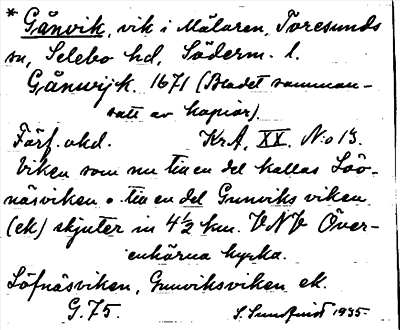 * Gånvik, vik i Mälaren, Toresunds
sn, Selebo hd, Söderm. l.
Gånwijk. 1671 (Bladet samman-
satt av kopior).
Förf. okd. KrA, XX. No 13.
Viken som nu till en del kallas Löv-
näsviken o. till en del Gunviks viken
(ek) skjuter in 4½ km. VNV Över-
enhörna kyrka.
Löfnäsviken, Gunviksviken ek.
G. 75. S. Sundqvist 1935.